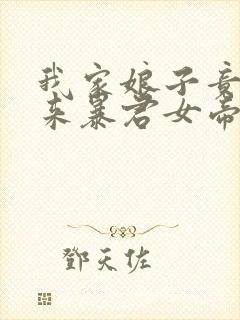 我家娘子竟
来暴君女帝
鄧天佐